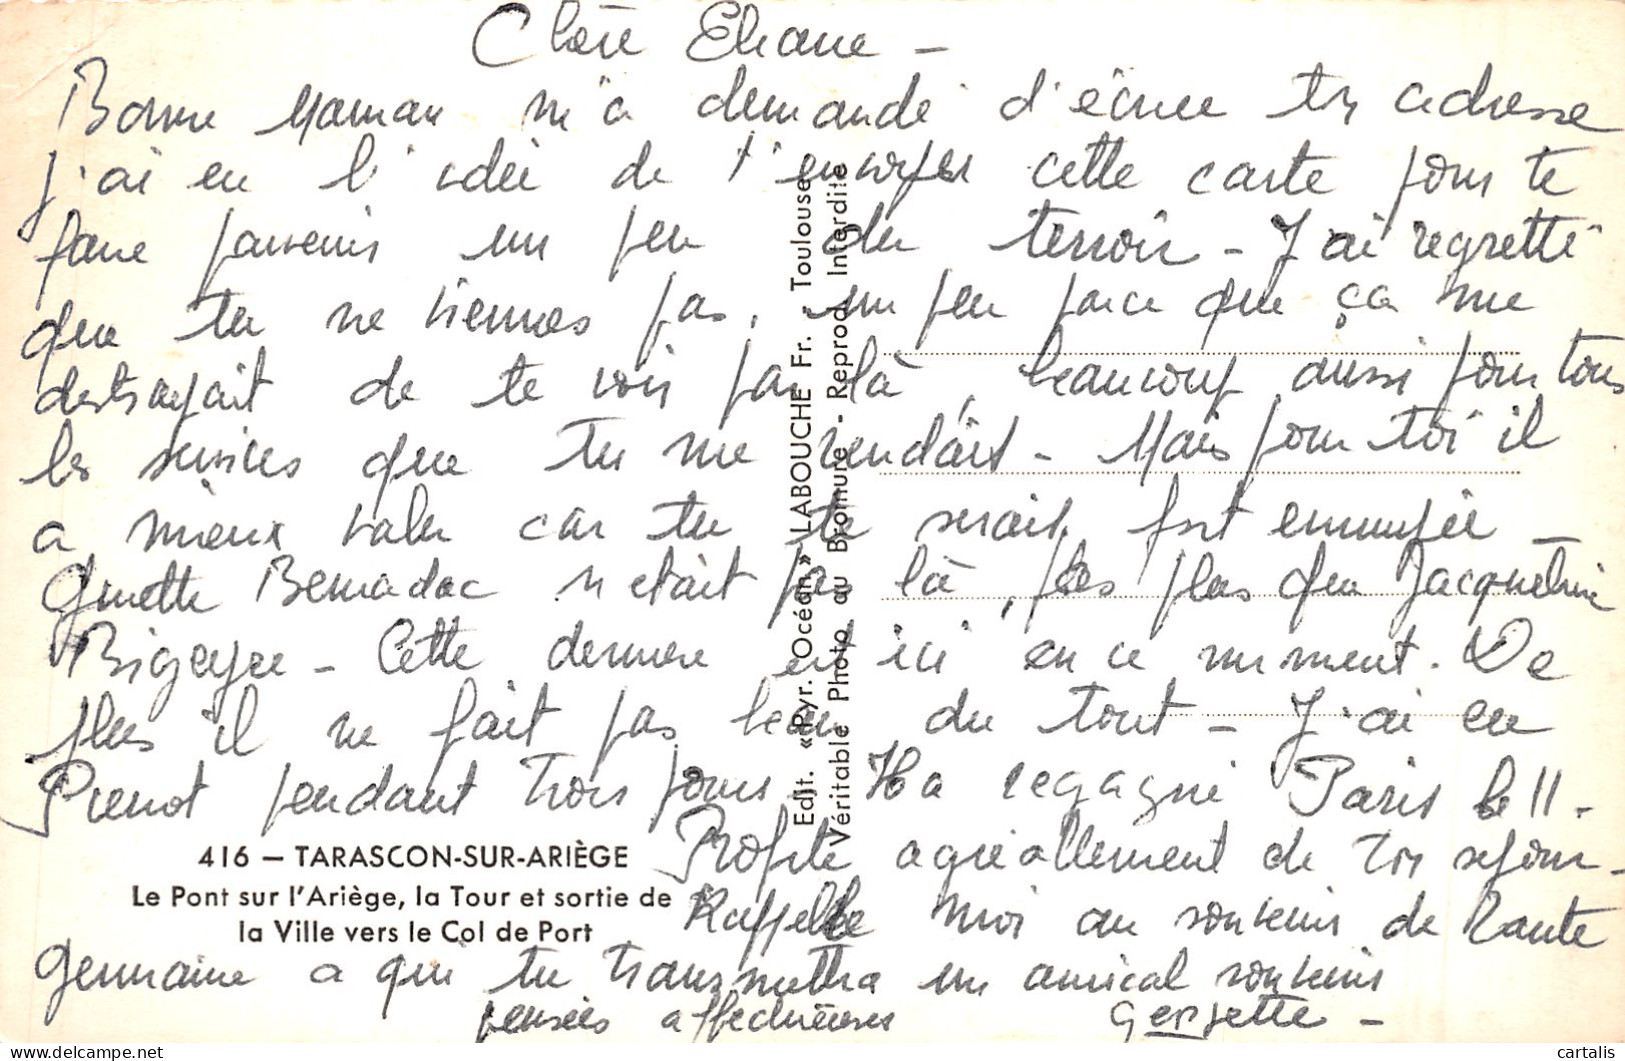 Chère Eliane -
Bonne Maman m'a demandé d'écrire ton adresse
j'ai eu l'idée de t'envoyer cette carte pour te
faire parvenir un peu du terroir - J'ai regretté
que tu ne viennes pas, un peu parce que ça me
distrayait de te voir par là, beaucoup aussi pour tous
les services que tu me rendais - Mais pour toi il
a mieux valu car tu te serais fort ennuyée -
Ginette Bernadac n'était pas là, pas plus que Jacqueline
Bigeyre - Cette dernière est ici en ce moment. De
plus il ne fait pas beau du tout - J'ai eu
Pierrot pendant trois jours Il a regagné Paris le 11 -
Profite agréablement de ton séjour -
Rappelle moi au souvenir de Tante
Germaine a qui tu transmettra un amical souvenir
pensées affectueuses
416 — TARASCON-SUR-ARIÈGE
Le Pont sur l'Ariège, la Tour et sortie de
la Ville vers le Col de Port
Edit. «Pyr. Océan» LABOUCHE Fr. - Toulouse
Véritable Photo au Bromure - Reprod. Interdite
cartalis